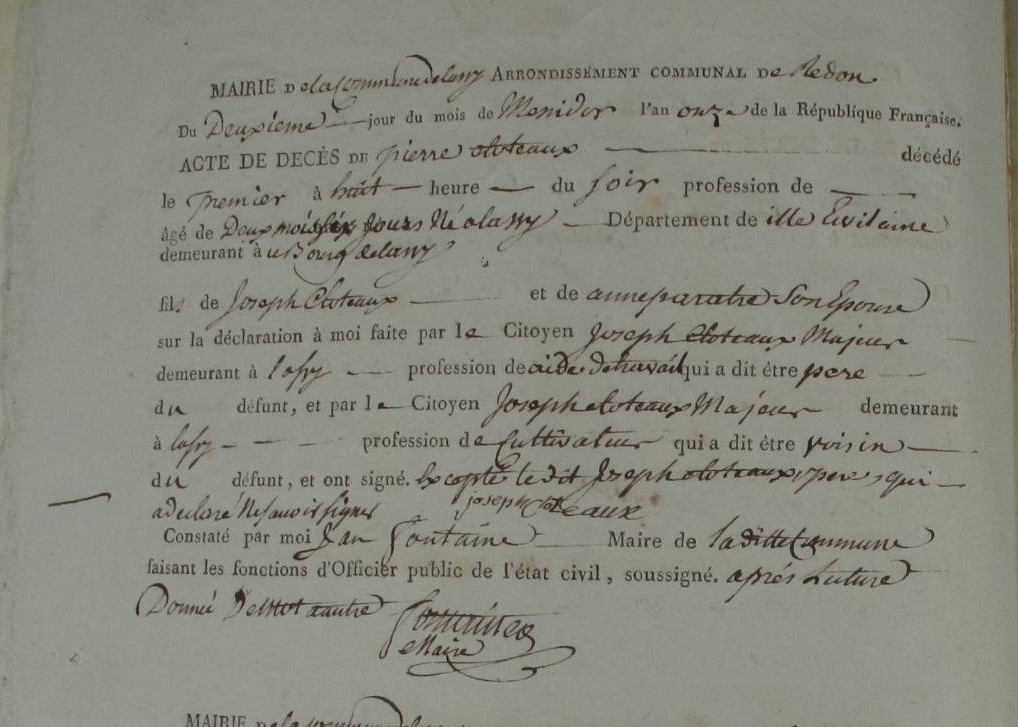 MAIRIE De la Commune de lassy ARRONDISSEMENT COMMUNAL De Redon
Du Deuxieme jour du mois de Messidor l'an onze de la République Française.
ACTE DE DECÈS DE pierre cloteaux décédé
le premier à huit heure du soir profession de
âgé de Deux mois six Jours Né a lassy Département de ille Evilaine
demeurant à u Bourg de lassy
fils de Joseph Cloteaux et de anne paratre Son Epouse
sur la déclaration à moi faite par le Citoyen Joseph Cloteaux Majeur
demeurant à lassy profession de aide de travail qui a dit être pere
du défunt, et par le Citoyen Joseph cloteaux Majeur demeurant
à lassy profession de Cultivateur qui a dit être voisin
du défunt, et ont signé. Excepté le dit Joseph cloteaux pere qui
a declaré Ne savoir signer joseph cloteaux
Constaté par moi Jan fontaine Maire de la ditte Commune
faisant les fonctions d'Officier public de l'état civil, soussigné. aprés Lecture
Donnée De Mot aautre fontaine
Maire
MAIRIE De la Commune de